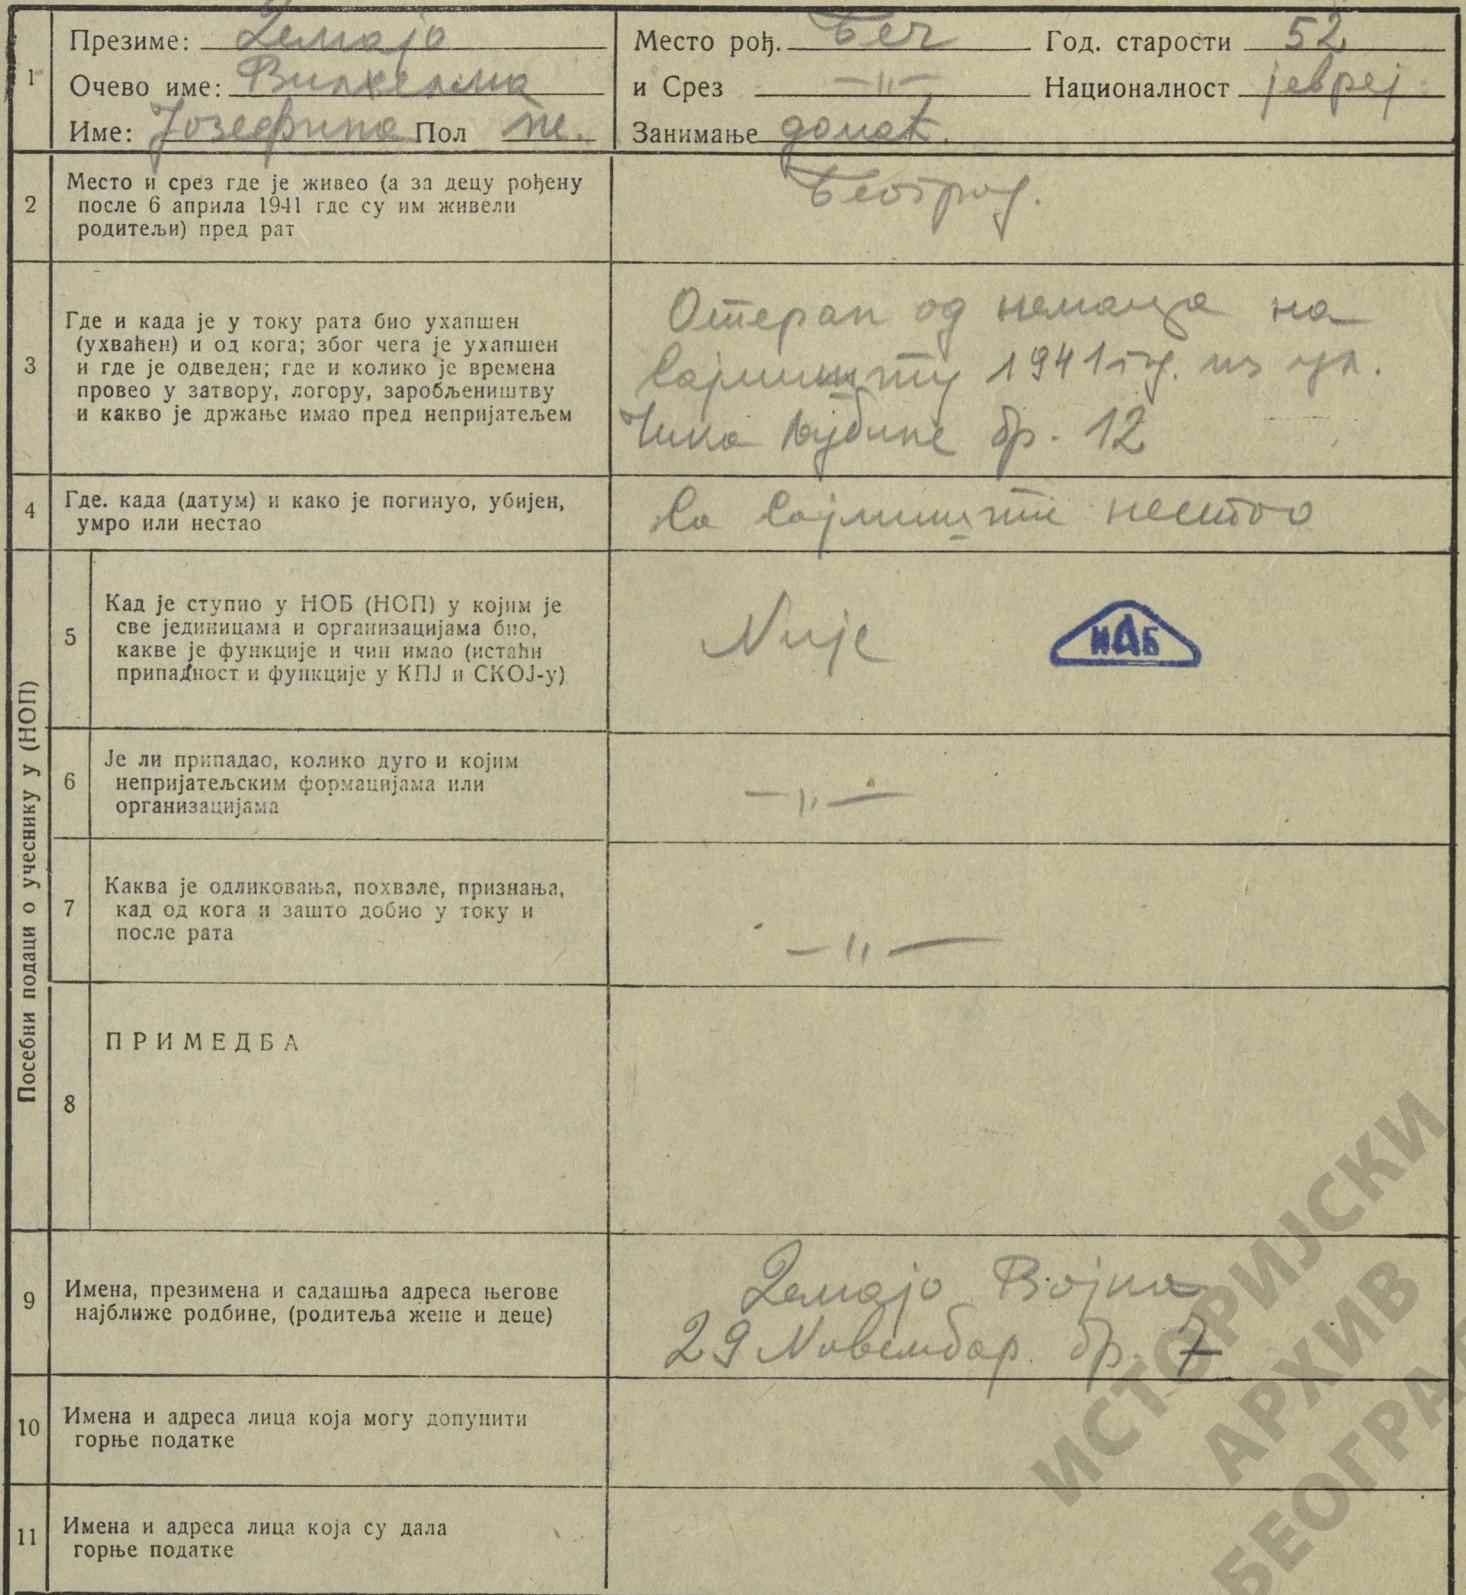 1
Презиме: Демајо
Место рођ. Беч Год. старости 52
Очево име: Вилхелма
и Срез —〃— Националност јевреј
Име: Јозефина Пол ж.
Занимање домаћ.
2
Место и срез где је живео (а за децу рођену
после 6 априла 1941 где су им живели
родитељи) пред рат
Београд.
3
Где и када је у току рата био ухапшен
(ухваћен) и од кога; због чега је ухапшен
и где је одведен; где и колико је времена
провео у затвору, логору, заробљеништву
и какво је држање имао пред непријатељем
Отеран од немаца на
Сајмишту 1941 г. из ул.
бр. 12
4
Где. када (датум) и како је погинуо, убијен,
умро или нестао
Са Сајмишта нестао
Посебни подаци о учеснику у (НОП)
5
Кад је ступио у НОБ (НОП) у којим је
све јединицама и организацијама био,
какве је функције и чин имао (истаћи
припадност и функције у КПЈ и СКОЈ-у)
Није
ИАБ
6
Је ли припадао, колико дуго и којим
непријатељским формацијама или
организацијама
—〃—
7
Каква је одликовања, похвале, признања,
кад од кога и зашто добио у току и
после рата
—〃—
8
ПРИМЕДБА
9
Имена, презимена и садашња адреса његове
најближе родбине, (родитеља жене и деце)
Демајо Војна
29 Новембар бр. 7
10
Имена и адреса лица која могу допунити
горње податке
11
Имена и адреса лица која су дала
горње податке
ИСТОРИЈСКИ
АРХИВ